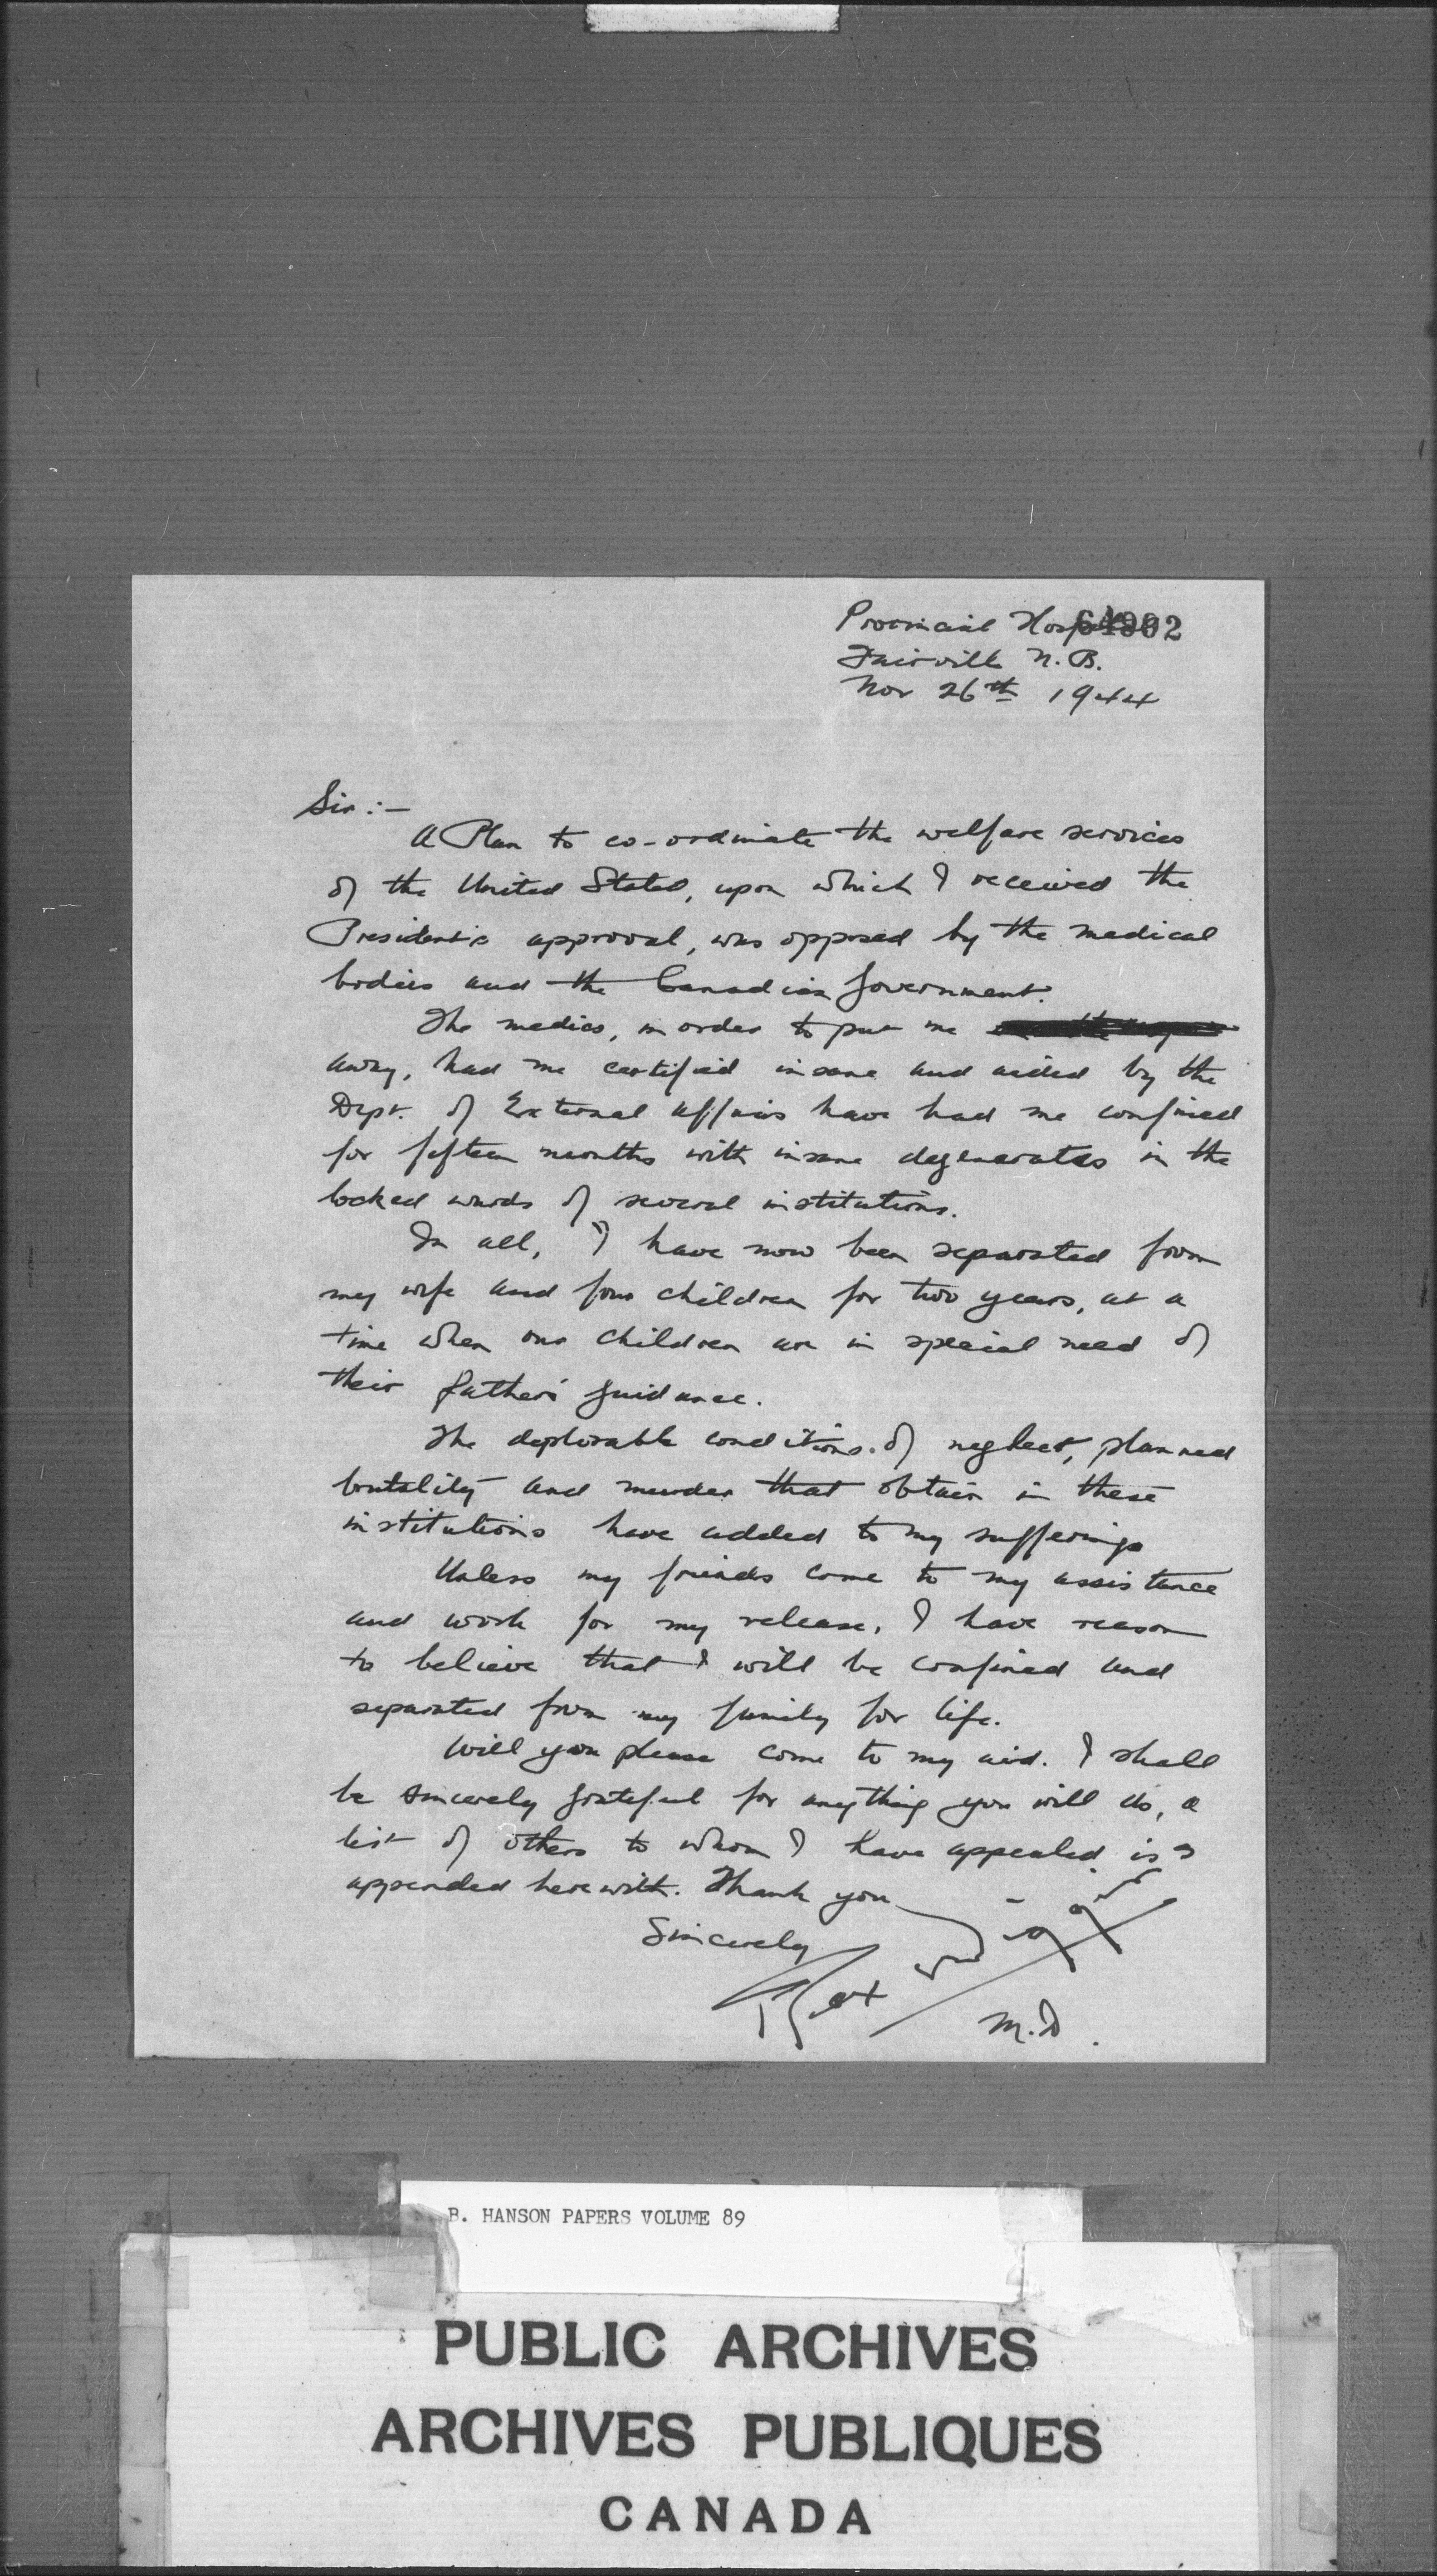 Provincial Hospital
Fairville N.B.
Nov 26th 1944
Sir :-
A Plan to co-ordinate the welfare services
of the United States, upon which I received the
President's approval, was opposed by the medical
bodies and the Canadian Government.
The medics, in order to put me
away, had me certified insane and aided by the
Dept. of External Affairs have had me confined
for fifteen months with insane degenerates in the
locked wards of several institutions.
In all, I have now been separated from
my wife and four children for two years, at a
time when our children are in special need of
their father's guidance.
The deplorable conditions of neglect, planned
brutality and murder that obtain in these
institutions have added to my sufferings
Unless my friends come to my assistance
and work for my release, I have reason
to believe that I will be confined and
separated from my family for life.
Will you please come to my aid. I shall
be sincerely grateful for anything you will do, a
list of others to whom I have appealed is
appended herewith. Thank you
Sincerely
Rex
M.D.
B. HANSON PAPERS VOLUME 89
PUBLIC ARCHIVES
ARCHIVES PUBLIQUES
CANADA